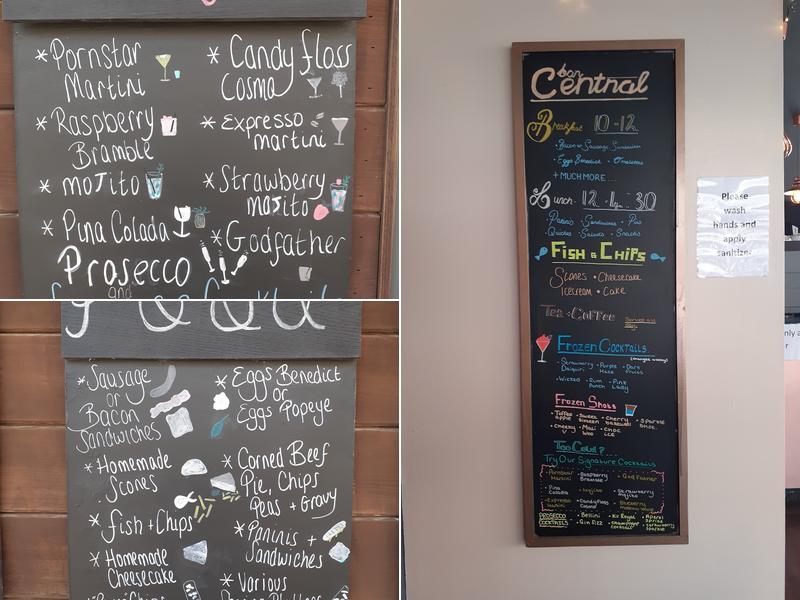 *Pornstar
Martini
*Raspberry
Bramble
*moJito
*Pina Colada
Prosecco
and
*Candy floss
Cosmo
*Expresso
martini
*Strawberry
mojito
*Godfather
*Sausage
or
Bacon
Sandwiches
*Homemade
Scones
*fish + Chips
*Homemade
Cheesecake
*Eggs Benedict
or
Eggs Popeye
*Corned Beef
Pie, Chips
Peas + Gravy
*Paninis +
Sandwiches
*Various
bar
Central
Breakfast 10-12
•Bacon or Sausage Sandwiches
•Eggs Benedict •Omelettes
+ MUCH MORE...
Lunch 12-4:30
Paninis • Sandwiches • Pies
Quiches • Salads • Snacks
Fish & Chips
Scones • Cheesecake
Icecream • Cake
Tea + Coffee Served all
day
Frozen Cocktails
(changes weekly)
•Strawberry •Purple •Dark
Daiquiri Haze fruits
•Wicked •Rum •Pink
Punch Lady
Frozen Shots
•Toffee •Sweet •Cherry •Sparkle
apple sixteen bakewell Shot
•Cheeky •Mali •Choc
V woo ice
Too Cold?
Try Our Signature Cocktails
•Pornstar •Raspberry •God Father
Martini Bramble
•Pina •Mojito •Strawberry
Colada Mojito
•Expresso •Candyfloss •Blueberry
Martini Cosmo
PROSECCO •Bellini •Kir Royal •Aperol
COCKTAILS •Gin Fizz Spritz
Please
wash
hands and
apply
sanitizer